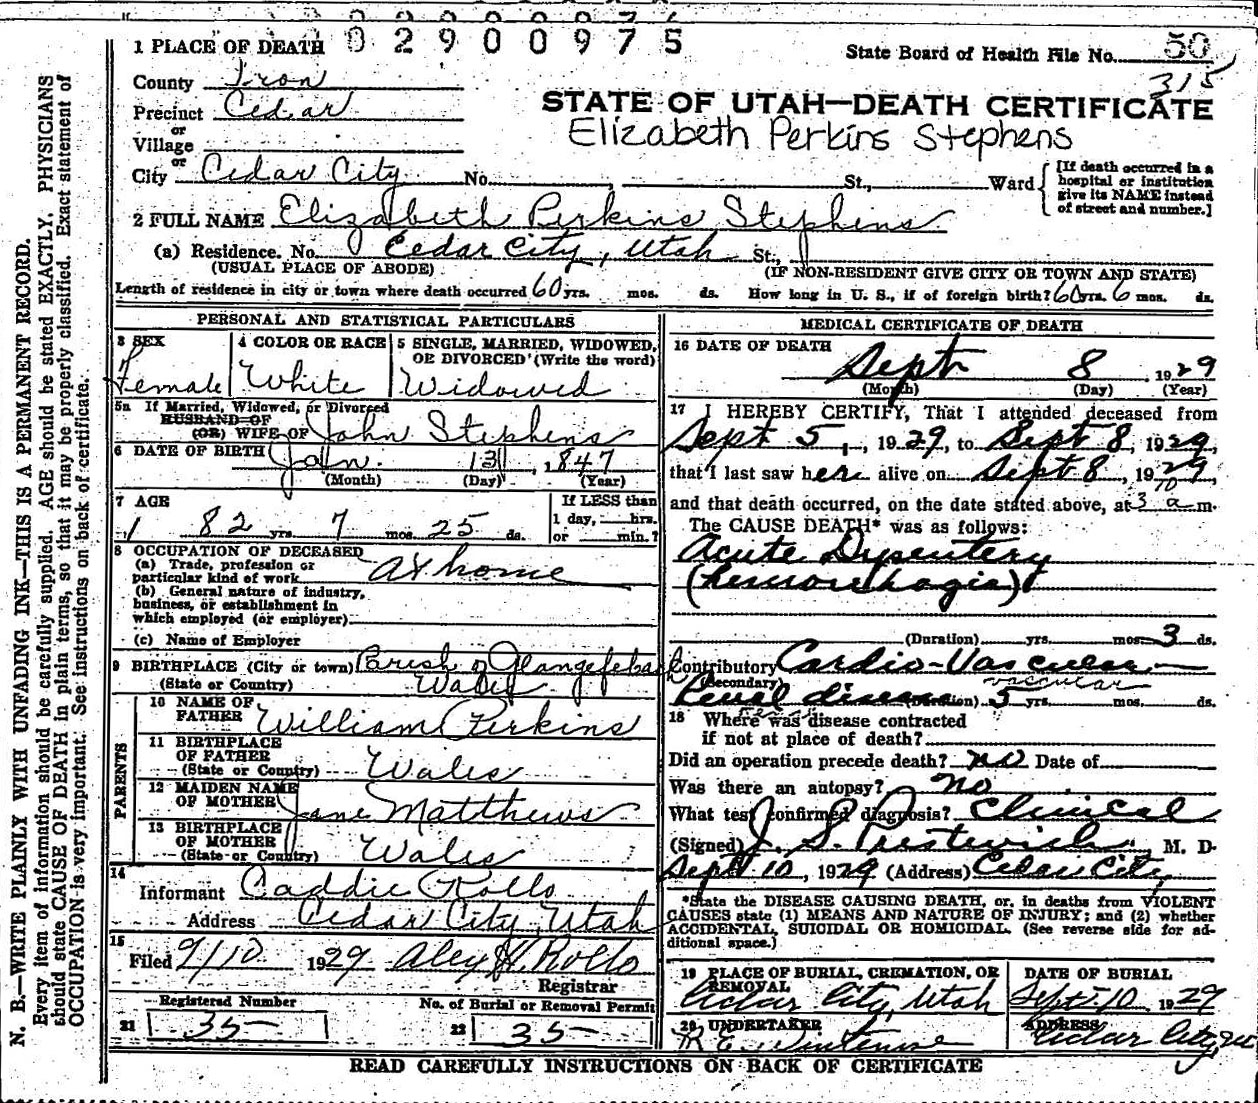 0 2 9 0 0 9 7 5
1 PLACE OF DEATH
State Board of Health File No. 50
315
County Iron
Precinct Cedar
or
Village
or
City Cedar City No. , St., Ward
[If death occurred in a hospital or institution give its NAME instead of street and number.]
STATE OF UTAH—DEATH CERTIFICATE
Elizabeth Perkins Stephens
2 FULL NAME Elizabeth Perkins Stephens
(a) Residence. No. Cedar City, Utah St.,
(USUAL PLACE OF ABODE) (IF NON-RESIDENT GIVE CITY OR TOWN AND STATE)
Length of residence in city or town where death occurred 60 yrs. mos. ds. How long in U. S., if of foreign birth? 60 yrs. 6 mos. ds.
PERSONAL AND STATISTICAL PARTICULARS
3 SEX
Female
4 COLOR OR RACE
White
5 SINGLE, MARRIED, WIDOWED, OR DIVORCED (Write the word)
Widowed
5a If Married, Widowed, or Divorced
HUSBAND OF
(OR) WIFE OF John Stephens
6 DATE OF BIRTH Jan. 13, 1847
(Month) (Day) (Year)
7 AGE
82 yrs. 7 mos. 25 ds.
If LESS than
1 day, hrs.
or min.?
8 OCCUPATION OF DECEASED
(a) Trade, profession or
particular kind of work At home
(b) General nature of industry,
business, or establishment in
which employed (or employer)
(c) Name of Employer
9 BIRTHPLACE (City or town) Parish of
(State or Country) Wales
PARENTS
10 NAME OF
FATHER William Perkins
11 BIRTHPLACE
OF FATHER
(State or Country) Wales
12 MAIDEN NAME
OF MOTHER Jane Matthews
13 BIRTHPLACE
OF MOTHER
(State or Country) Wales
14
Informant Caddie Rollo
Address Cedar City, Utah
15
Filed 9/10 1929 Alex H. Rollo
Registrar
Registered Number
21 35
No. of Burial or Removal Permit
22 35
MEDICAL CERTIFICATE OF DEATH
16 DATE OF DEATH
Sept 8 1929
(Month) (Day) (Year)
17 I HEREBY CERTIFY, That I attended deceased from
Sept 5, 1929, to Sept 8, 1929,
that I last saw her alive on Sept 8, 1929,
and that death occurred, on the date stated above, at 3 10 a m.
The CAUSE DEATH* was as follows:
Acute Dysentery
(hemorrhagia)
(Duration) yrs. mos. 3 ds.
Contributory Cardio-Vascular
(Secondary) vascular
Renal disease (Duration) 5 yrs. mos. ds.
18 Where was disease contracted
if not at place of death?
Did an operation precede death? no Date of
Was there an autopsy? no
What test confirmed diagnosis? Clinical
(Signed) J. S. Prestwich, M. D.
Sept 10, 1929 (Address) Cedar City
*State the DISEASE CAUSING DEATH, or, in deaths from VIOLENT
CAUSES state (1) MEANS AND NATURE OF INJURY; and (2) whether
ACCIDENTAL, SUICIDAL OR HOMICIDAL. (See reverse side for ad-
ditional space.)
19 PLACE OF BURIAL, CREMATION, OR
REMOVAL
Cedar City, Utah
DATE OF BURIAL
Sept 10 1929
20 UNDERTAKER
ADDRESS
Cedar City, Ut
READ CAREFULLY INSTRUCTIONS ON BACK OF CERTIFICATE
N. B.—WRITE PLAINLY WITH UNFADING INK—THIS IS A PERMANENT RECORD.
Every item of information should be carefully supplied. AGE should be stated EXACTLY. PHYSICIANS
should state CAUSE OF DEATH in plain terms, so that it may be properly classified. Exact statement of
OCCUPATION is very important. See instructions on back of certificate.